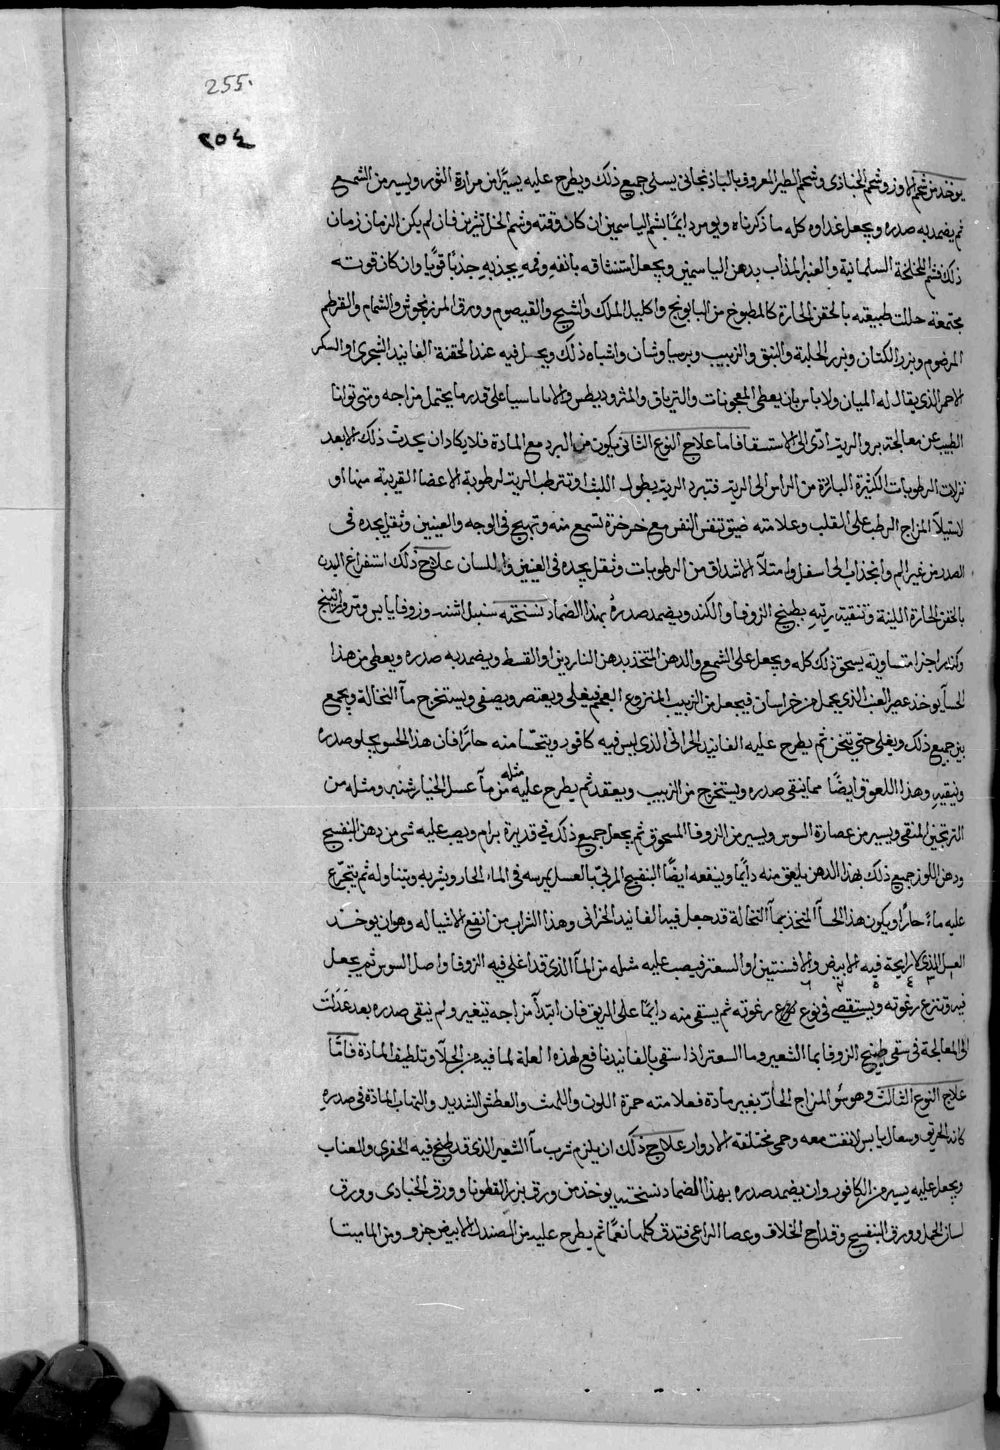 255
٢٥٤
يوخذ من شحم الاوز وشحم الخبازى وشحم الطير المعروف بالباذنجانى يسلى جميع ذلك ويطرح عليه يسيرًا من مرارة الثور ويسير من الشمع
ثم يضمد به صدره ويجعل غداوه كله ما ذكرناه ويومر دايمًا بشم الياسمين ان كان وقته وشم الخل نثرين فان لم يكن الزمان زمان
ذلك فشم اللخلخة السلمانية والعنبر المذاب بدهن الياسمين ويجعل استنشاقه بانفه وفمه يجذبه جذبًا قويًا وان كان قوته
مجتمعة حللت طبيعته بالحقن الحارة كالمطبوخ من البابونج واكليل الملك والشيح والقيصوم وورق المرزنجوش والشمام والقرطم
المرضوم وبزر الكتان وبزر الحلبة والتين والزبيب وبرسياوشان واشباه ذلك ويحل فيه عند الحقنة الفانيد الشجرى او السكر
الاحمر الذى يقال له الميان ولا باس بان يعطى المعجونات والترياق والمثروديطوس والاماناسيا على قدر ما يحتمل مزاجه ومتى توانا
الطبيب عن معالجة برد الرية ادى الى الاستسقا فاما علاج النوع الثانى يكون من البرد مع المادة فلا يكاد ان يحدث ذلك الا بعد
نزلات الرطوبات الكثيرة الباردة من الراس الى الرية فتبرد الرية بطول اللبث او تترطب الرية لرطوبة الاعضا القريبة منها او
لاستيلاء المزاج الرطب على القلب وعلامته ضيق تنفس النفس مع خرخرة تسمع منه وتهيج فى الوجه والعينين وثقل يجده فى
الصدر من غير الم وانجذاب الى اسفل وامتلآ الاشداق من الرطوبات وثقل يجده فى العينين واللسان علاج ذلك استفراغ البدن
بالحقن الحارة اللينة وتنقية ريته بطبيخ الزوفا والكندر ويضمد صدره بهذا الضماد نسخته سنبل اشنه وزوفا يابس
اجزا متساوية يسحق ذلك كله ويجعل على الشمع والدهن المتخذ بدهن الناردين او القسط ويضمد به صدره ويعطى من هذا
الحسآ يوخذ عصير العنب الذى يحمل من خراسان فيجعل من الزبيب المنزوع العجم فيغلى ويعتصر ويصفى ويستخرج مآ النخالة ويجمع
بين جميع ذلك ويغلى حتى يثخن ثم يطرح عليه الفانيد الخزائنى الذى ليس فيه كافور ويتحسا منه حارًا فان هذا الحسو يجلو صدره
وينقيه وهذا اللعوق ايضًا مما ينقى صدره ويستخرج من الزبيب ويعقد ثم يطرح عليه مثله من مآ عسل الخيار شنبر ومثله من
الترنجبين المنقى ويسير من عصارة السوس ويسير من الزوفا المسحوق ثم يجعل جميع ذلك فى قديرة برام ويصب عليه شى من دهن البنفسج
ودهن اللوز جميع ذلك بهذا الدهن يلعق منه دايمًا وينفعه ايضًا البنفسج المربى بالعسل يمرسه فى الماء الحار ويشربه ويتناوله ثم يتجرع
عليه ماءً حارًا ويكون هذا الحسآ المتخذ بمآ النخالة قد جعل فيه الفانيد الخزائنى وهذا الشراب من انفع الاشيا له وهو ان يوخذ
العسل الذى لا رايحة فيه الابيض والافسنتين او السعتر فيصب عليه مثله من المآ الذى قد اغلى فيه الزوفا واصل السوس ثم يجعل
فيه وتنزع رغوته ويستقصى فى نوع نزع رغوته ثم يسقى منه دايمًا على الريق فان ابتدأ مزاجه يتغير ولم ينقى صدره بعد عدلت
الى المعالجة فى سقى طبيخ الزوفا بما الشعير وما السعتر اذا سقى بالفانيد نافع لهذه العلة لما فيه من الجلآ وتلطيف المادة فامّا
علاج النوع الثالث وهو سُو المزاج الحآر بغير مادة فعلامته حمرة اللون واللهث والعطش الشديد والتهاب المادة فى صدره
كانه الحريق وسعال يابس لا نفث معه وحمى مختلفة الادوار علاج ذلك ان يلزم شرب مآ الشعير الذى قد طبخ فيه الخفرى والعناب
ويجعل عليه يسير من الكافور وان يضمد صدره بهذا الضماد نسخته يوخذ من ورق بزر القطونا وورق الخبازى وورق
لسان الحمل وورق البنفسج وقداح الخلاف وعصا الراعى فتدق كلها نعمًا ثم يطرح عليه من الصندل الابيض جزو ومن الماميثا